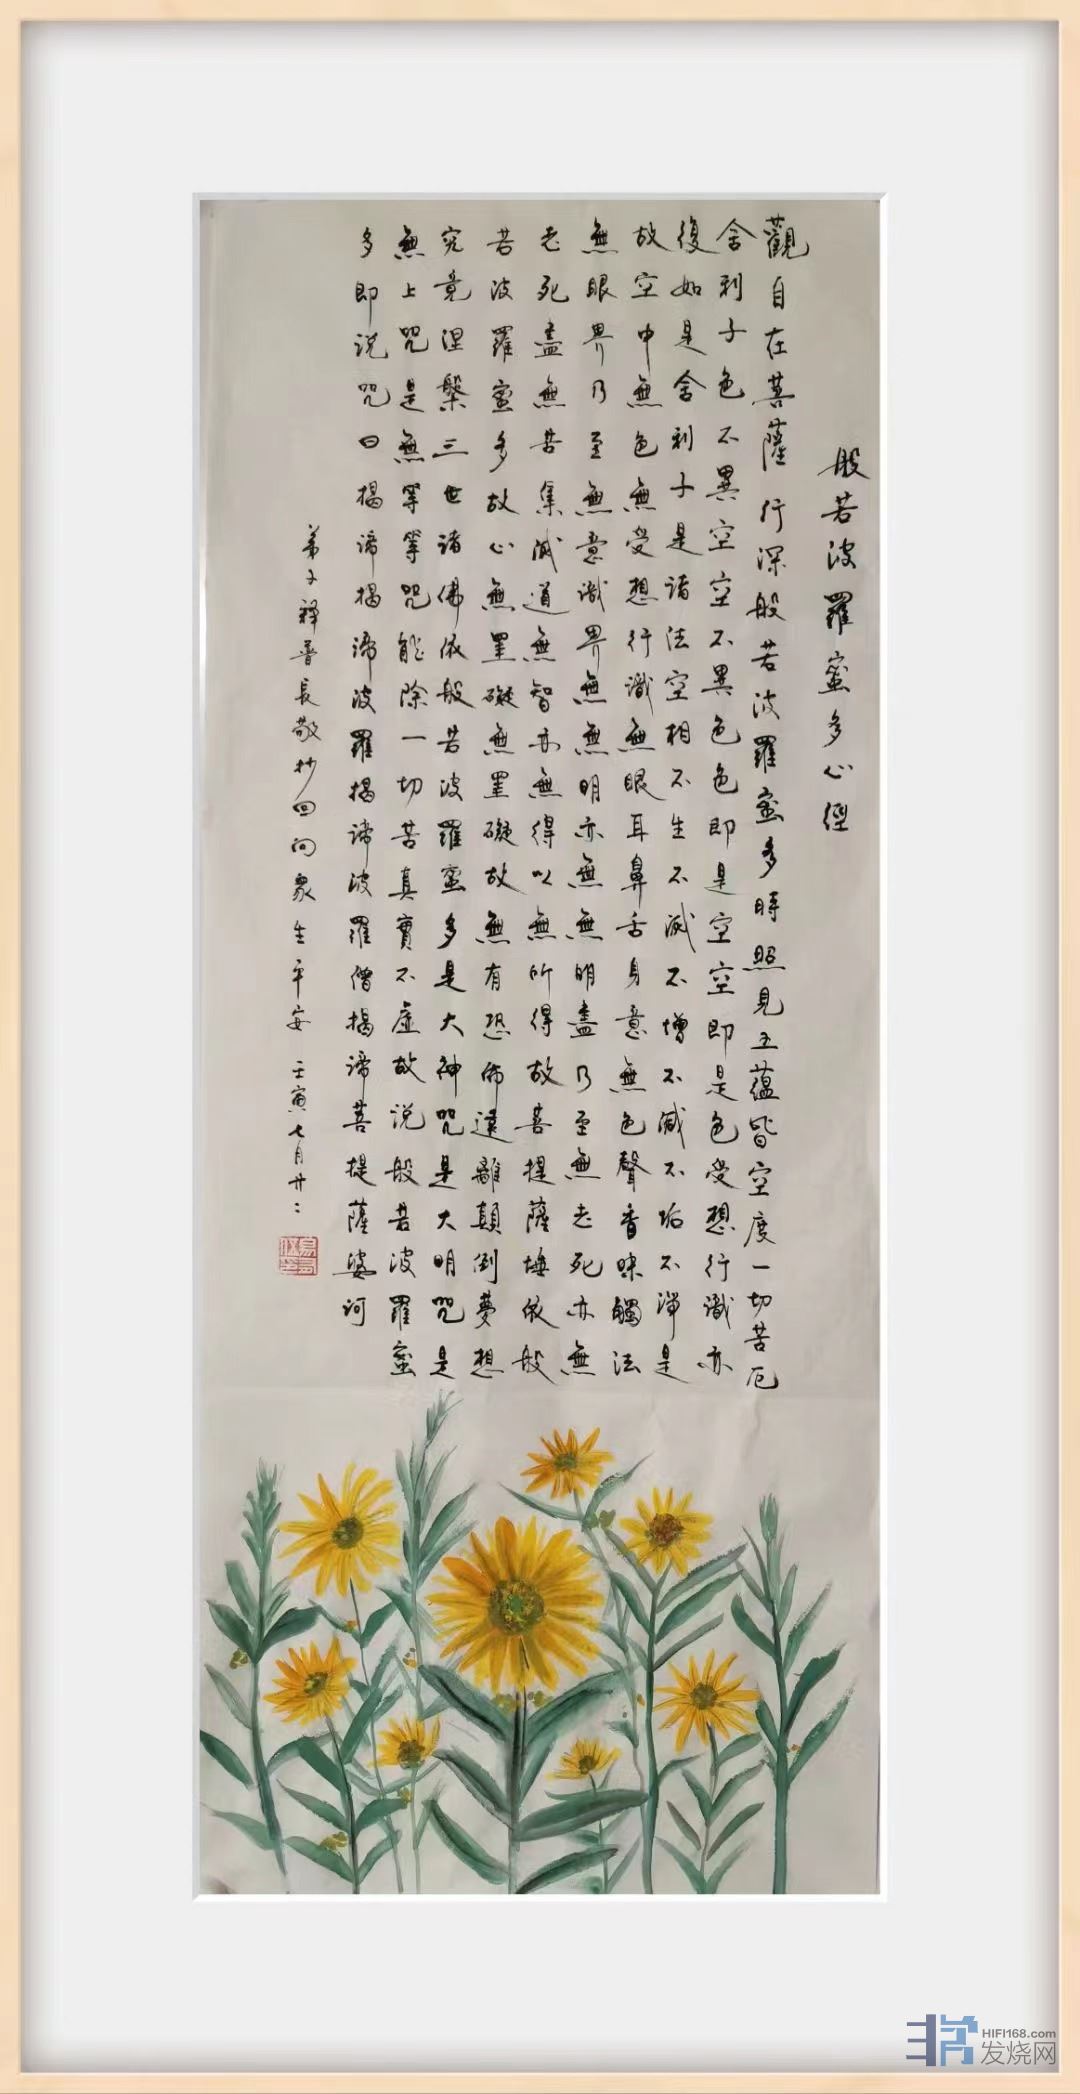 般若波羅蜜多心經
觀自在菩薩行深般若波羅蜜多時照見五蘊皆空度一切苦厄
舍利子色不異空空不異色色即是空空即是色受想行識亦
復如是舍利子是諸法空相不生不滅不增不減不垢不淨是
故空中無色無受想行識無眼耳鼻舌身意無色聲香味觸法
無眼界乃至無意識界無無明亦無無明盡乃至無老死亦無
老死盡無苦集滅道無智亦無得以無所得故菩提薩埵依般
若波羅蜜多故心無罣礙無罣礙故無有恐怖遠離顛倒夢想
究竟涅槃三世諸佛依般若波羅蜜多是大神咒是大明咒是
無上咒是無等等咒能除一切苦真實不虛故說般若波羅蜜
多即說咒曰揭諦揭諦波羅揭諦波羅僧揭諦菩提薩婆訶
弟子釋普長敬抄回向眾生平安 壬寅七月廿二
HIFI168.com
发烧网